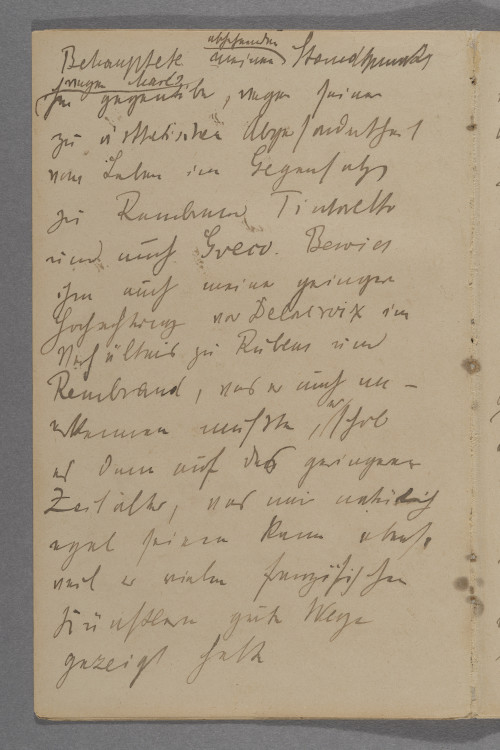 Behauptete meinen Standpunkt
ihm gegenüber, wegen seiner
zu ästhetischen Abgesondertheit
vom Leben im Gegensatz
zu Rembrand Tintoretto
und auch Greco. Bewies
ihm auch meine geringere
Hochachtung vor Delacroix im
Verhältnis zu Rubens und
Rembrand, was er auch an-
erkennen musste, er schob
es dann auf das geringere
Zeitalter, was mir natürlich
egal seinen kann
weil er vielen französischen
Künstlern gute Wege
gezeigt hatte